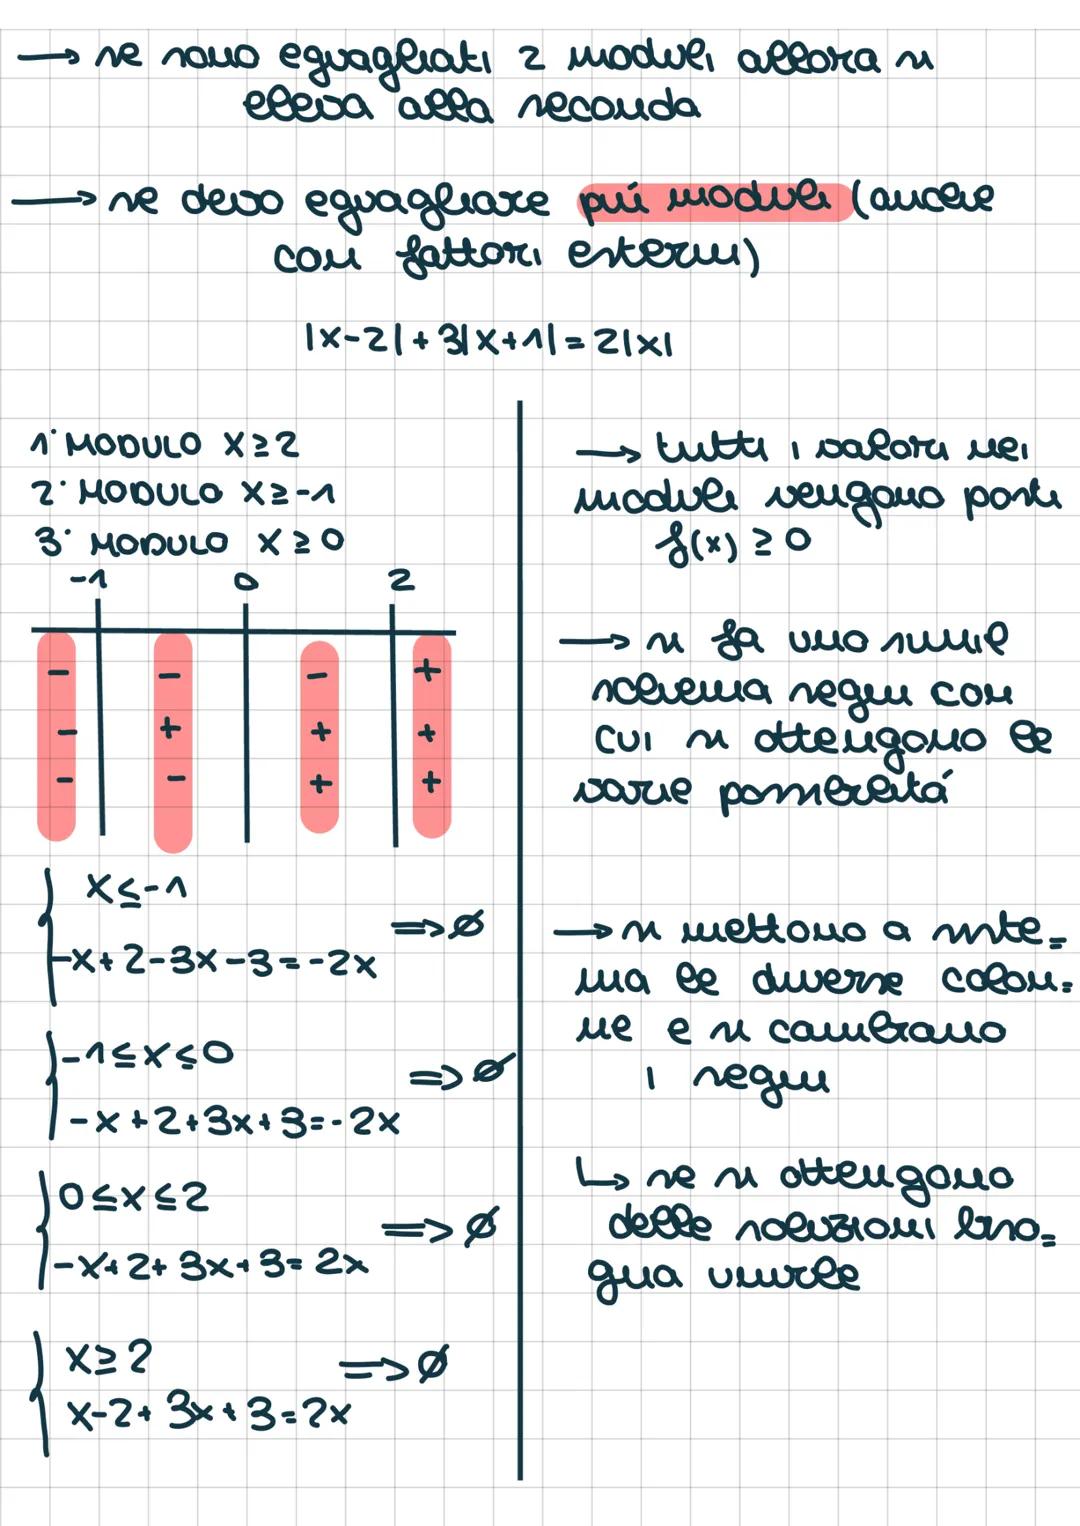 → se sono eguagliati 2 moduli allora si
eleva alla seconda
→ se devo eguagliare più moduli (anche
con fattori esterni)
|x-2|+3|x+1|=2|x|
1° MODULO X≥2
2° MODULO X≥-1
3° MODULO X≥0
-1 0 2
- - - +
- + + +
- - + +
X≤-1
-X+2-3X-3=-2X ⇒ ∅
-1≤X≤0
-X+2+3X+3=-2X ⇒ ∅
0≤X≤2
-X+2+3X+3=2X ⇒ ∅
X≥2
X-2+3X+3=2X ⇒ ∅
→ tutti i valori nei
moduli vengono posti
f(x) ≥ 0
→ si fa uno simil
schema segni con
cui si ottengono le
varie possibilitá
→ si mettono a siste=
ma le diverse colon=
ne e si cambiano
i segni
↳ se si ottengono
delle soluzioni biso=
gna unirle